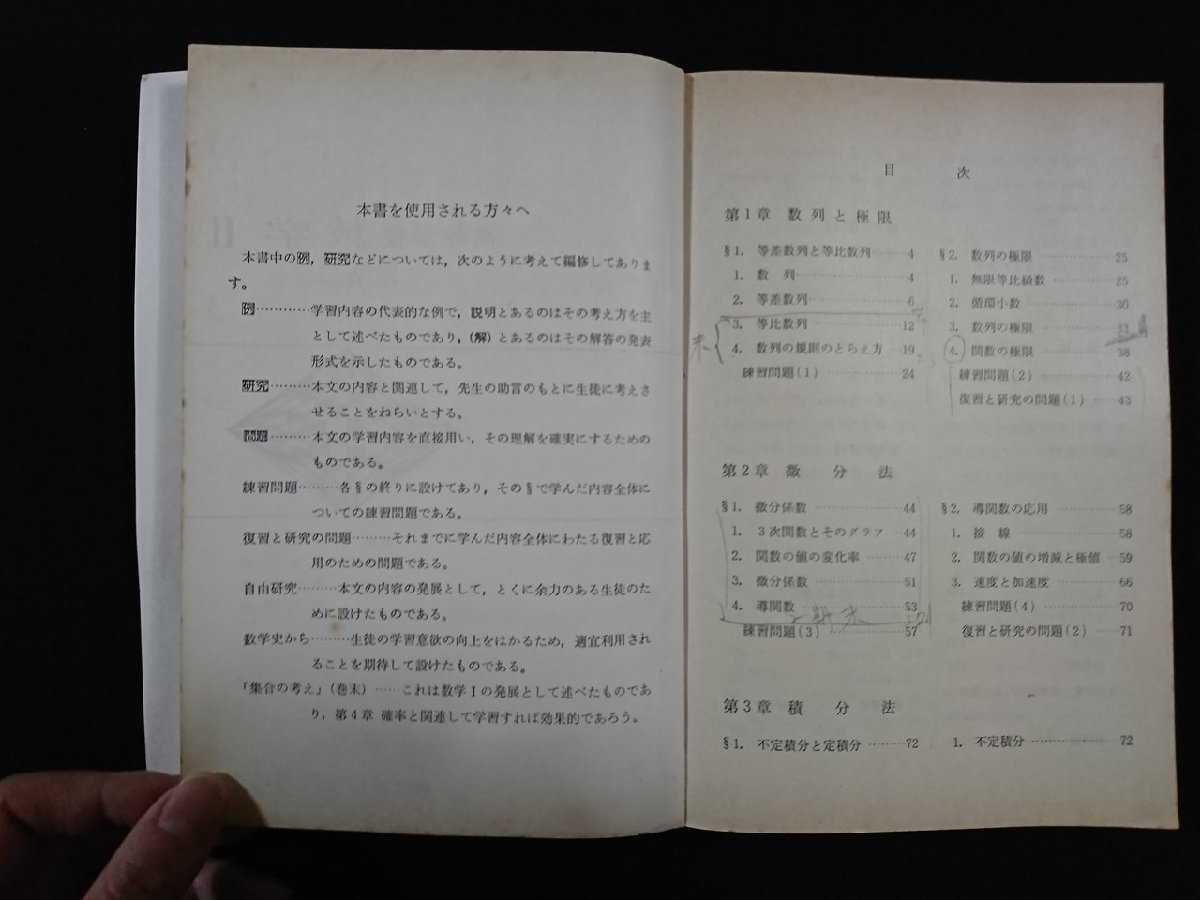 本書を使用される方々へ
本書中の例，研究などについては，次のように考えて編修してありま
す。
例…………学習内容の代表的な例で，説明とあるのはその考え方を主
として述べたものであり，(解)とあるのはその解答の発表
形式を示したものである。
研究………本文の内容と関連して，先生の助言のもとに生徒に考えさ
せることをねらいとする。
問題………本文の学習内容を直接用い，その理解を確実にするための
ものである。
練習問題………各§の終りに設けてあり，その§で学んだ内容全体に
ついての練習問題である。
復習と研究の問題………それまでに学んだ内容全体にわたる復習と応
用のための問題である。
自由研究………本文の内容の発展として，とくに余力のある生徒のた
めに設けたものである。
数学史から………生徒の学習意欲の向上をはかるため，適宜利用され
ることを期待して設けたものである。
「集合の考え」(巻末)……これは数学Ⅰの発展として述べたものであ
り，第4章 確率と関連して学習すれば効果的であろう。
目 次
第1章 数列と極限
§1. 等差数列と等比数列……4
1. 数 列……4
2. 等差数列……6
3. 等比数列……12
4. 数列の規則のとらえ方……19
練習問題(1)……24
§2. 数列の極限……25
1. 無限等比級数……25
2. 循環小数……30
3. 数列の極限……33
4. 関数の極限……38
練習問題(2)……42
復習と研究の問題(1)……43
第2章 微 分 法
§1. 微分係数……44
1. 3次関数とそのグラフ……44
2. 関数の値の変化率……47
3. 微分係数……51
4. 導関数……53
練習問題(3)……57
§2. 導関数の応用……58
1. 接 線……58
2. 関数の値の増減と極値……59
3. 速度と加速度……66
練習問題(4)……70
復習と研究の問題(2)……71
第3章 積 分 法
§1. 不定積分と定積分……72
1. 不定積分……72